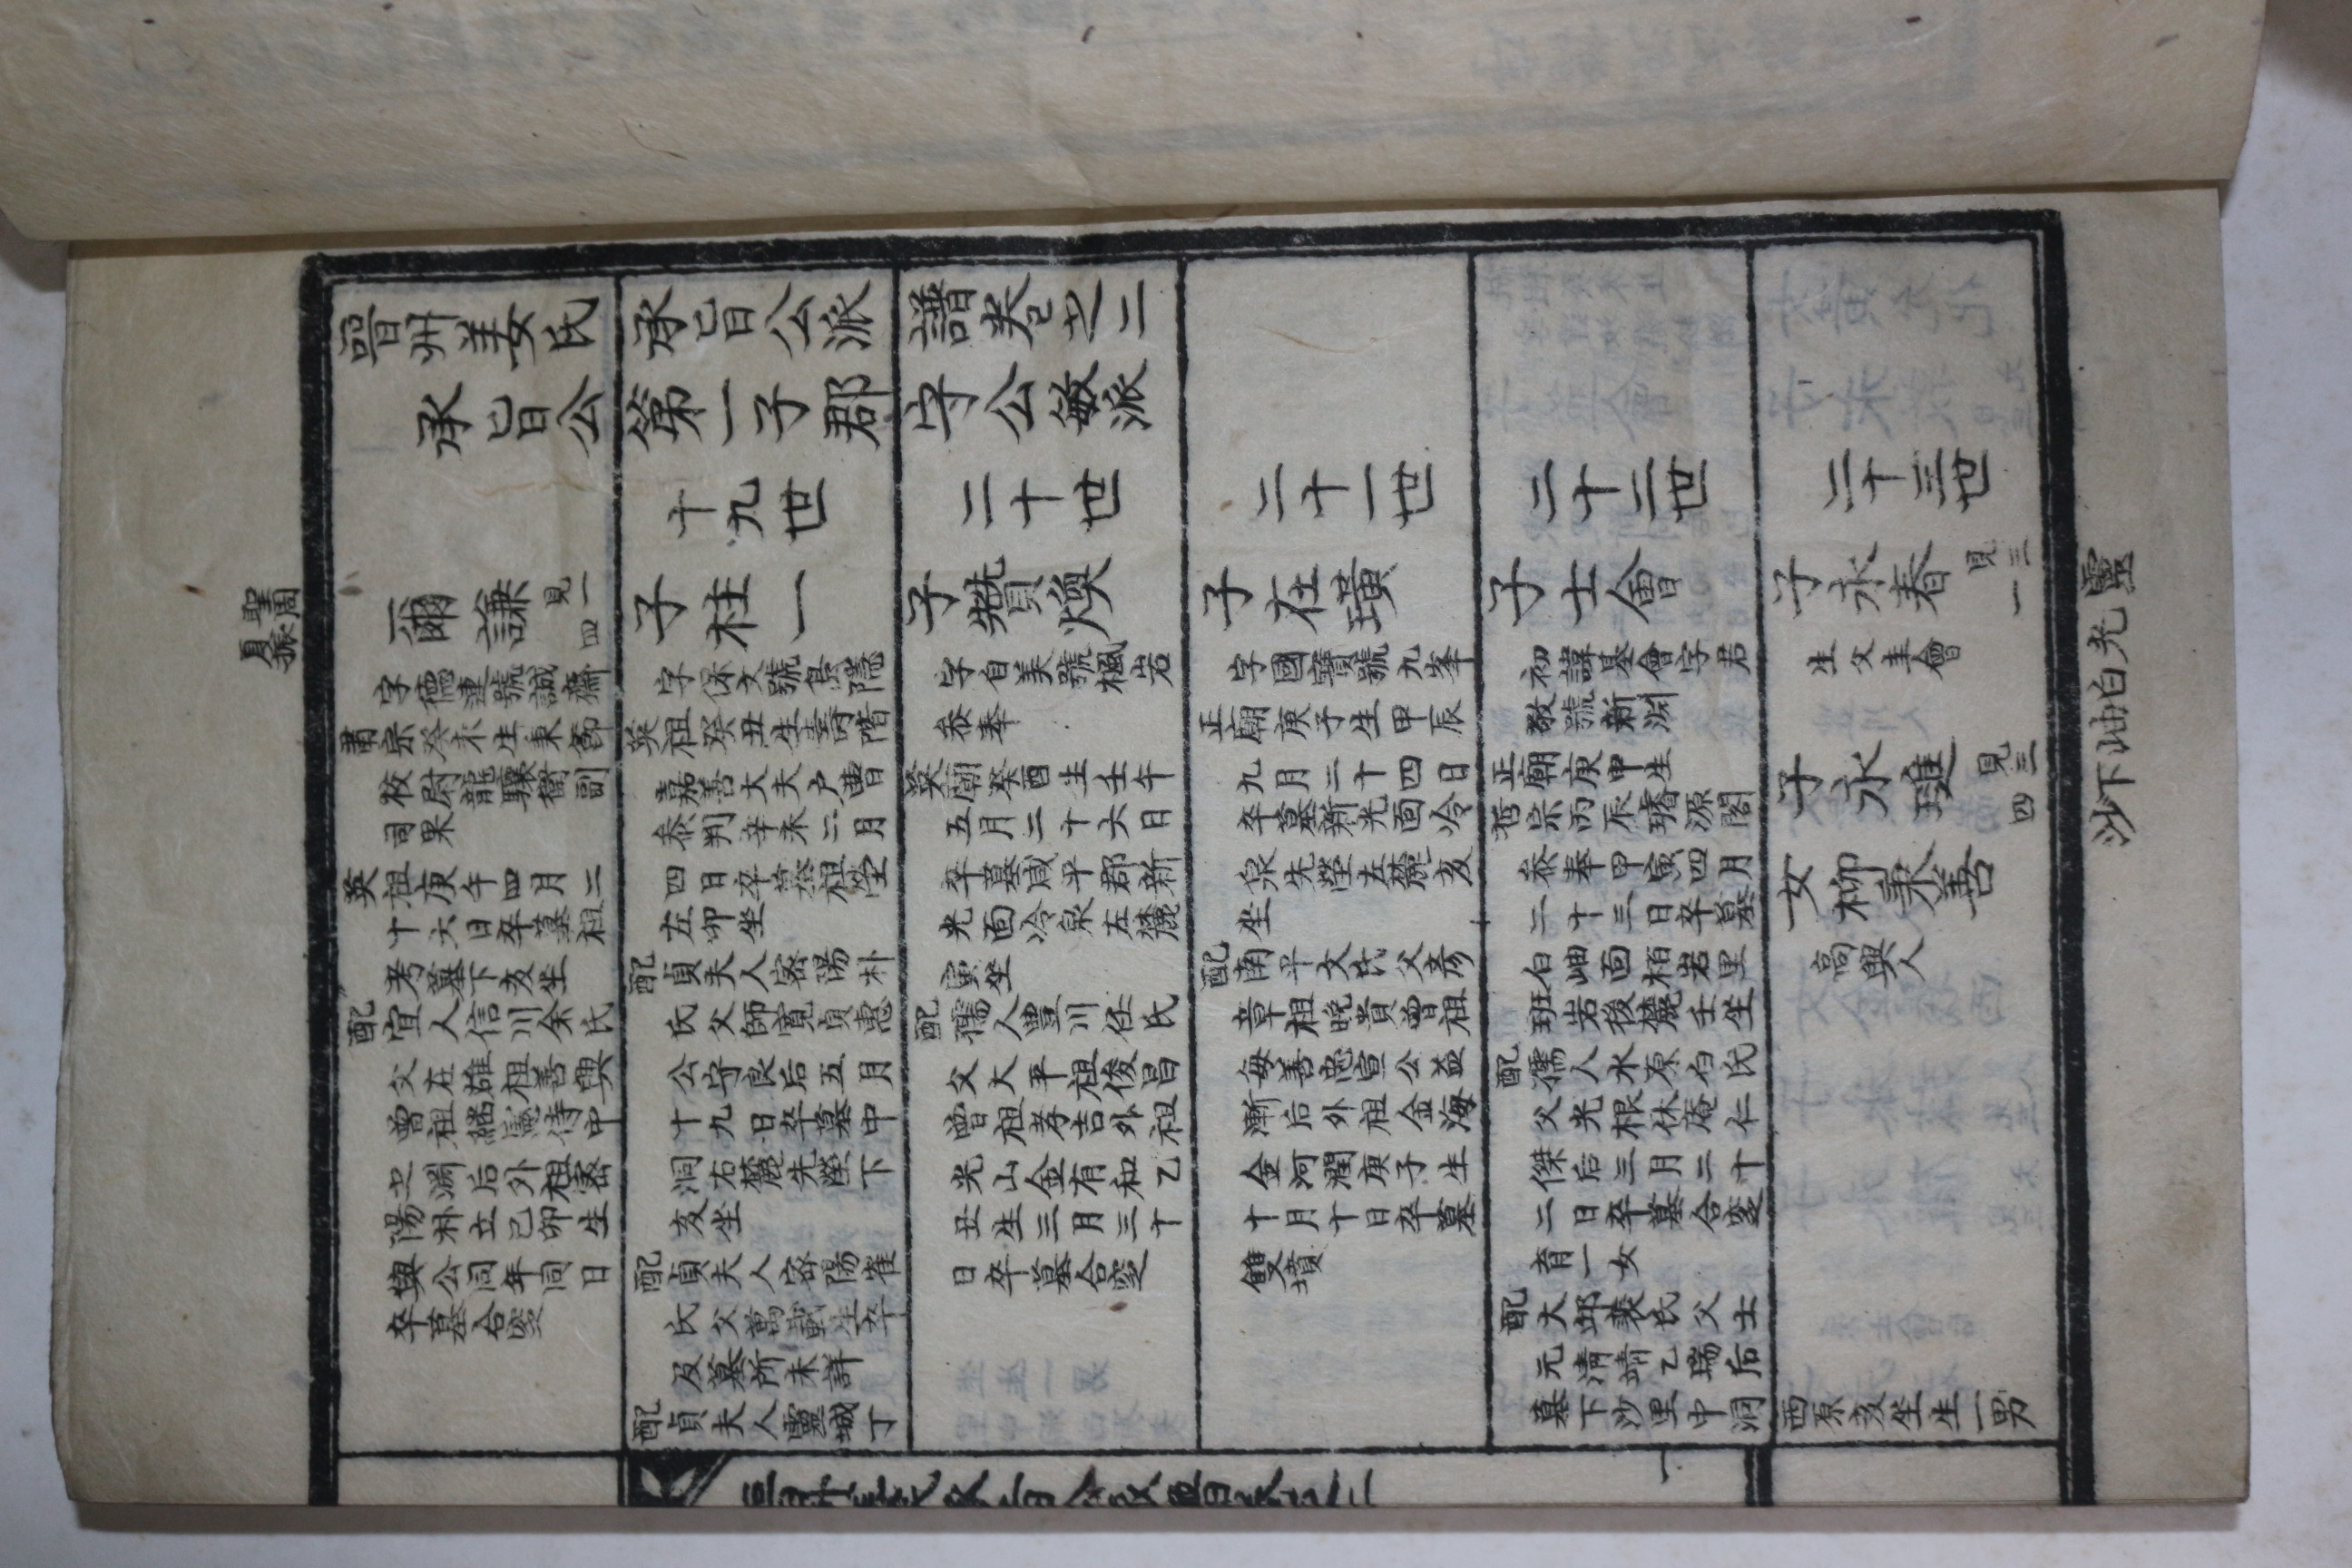 晉州姜氏承旨公派譜卷之二
承旨公第一子郡守公敏派
十九世
二十世
二十一世
二十二世
二十三世
爾謙 見一四
字德連號誠齋
肅宗癸未生秉節
校尉龍驤衛副
司果
英祖庚午四月二
十六日卒墓祖
考墓下亥坐
配宜人信川余氏
父在雄祖善興
曾祖繼憲侍中
之淵后外祖密
陽朴立己卯生
與公同年同日
卒墓合窆
子柱一
字保文號負隱
英祖癸丑生壽階
嘉善大夫戶曹
參判辛未二月
四日卒墓祖塋
左卯坐
配貞夫人密陽朴
氏父師寬貞惠
公守良后五月
十九日卒墓中
洞右麓先塋下
亥坐
配貞夫人密陽崔
氏父萬載生卒
及墓所未詳
配貞夫人靈城丁
子贊煥
字自美號楓岩
參奉
英廟癸酉生壬午
五月二十六日
卒墓咸平郡新
光面冷泉左麓
寅坐
配孺人豊川任氏
父大平祖俊昌
曾祖孝吉外祖
光山金有和乙
丑生三月三十
日卒墓合窆
子在璜
字國寶號九峯
正廟庚子生甲辰
九月二十四日
卒墓新光面冷
泉先塋左麓亥
坐
配南平文氏父彦
章祖晩貴曾祖
每善忠宣公益
漸后外祖金海
金河潤庚子生
十月十日卒墓
雙墳
子士會
初諱基會字君
敬號新淵
正廟庚申生
哲宗丙辰璿源閣
參奉甲寅四月
二十三日卒墓
白岫面栢岩里
班岩後麓壬坐
配孺人水原白氏
父光根休庵仁
傑后三月二十
二日卒墓合窆
育一女
配大邱裵氏父士
元清靖乙瑞后
墓下沙里中洞
西原亥坐生一男
子永春 見三一
生父圭會
子永璡 見三四
女柳秉善
高興人
靈光白岫下沙